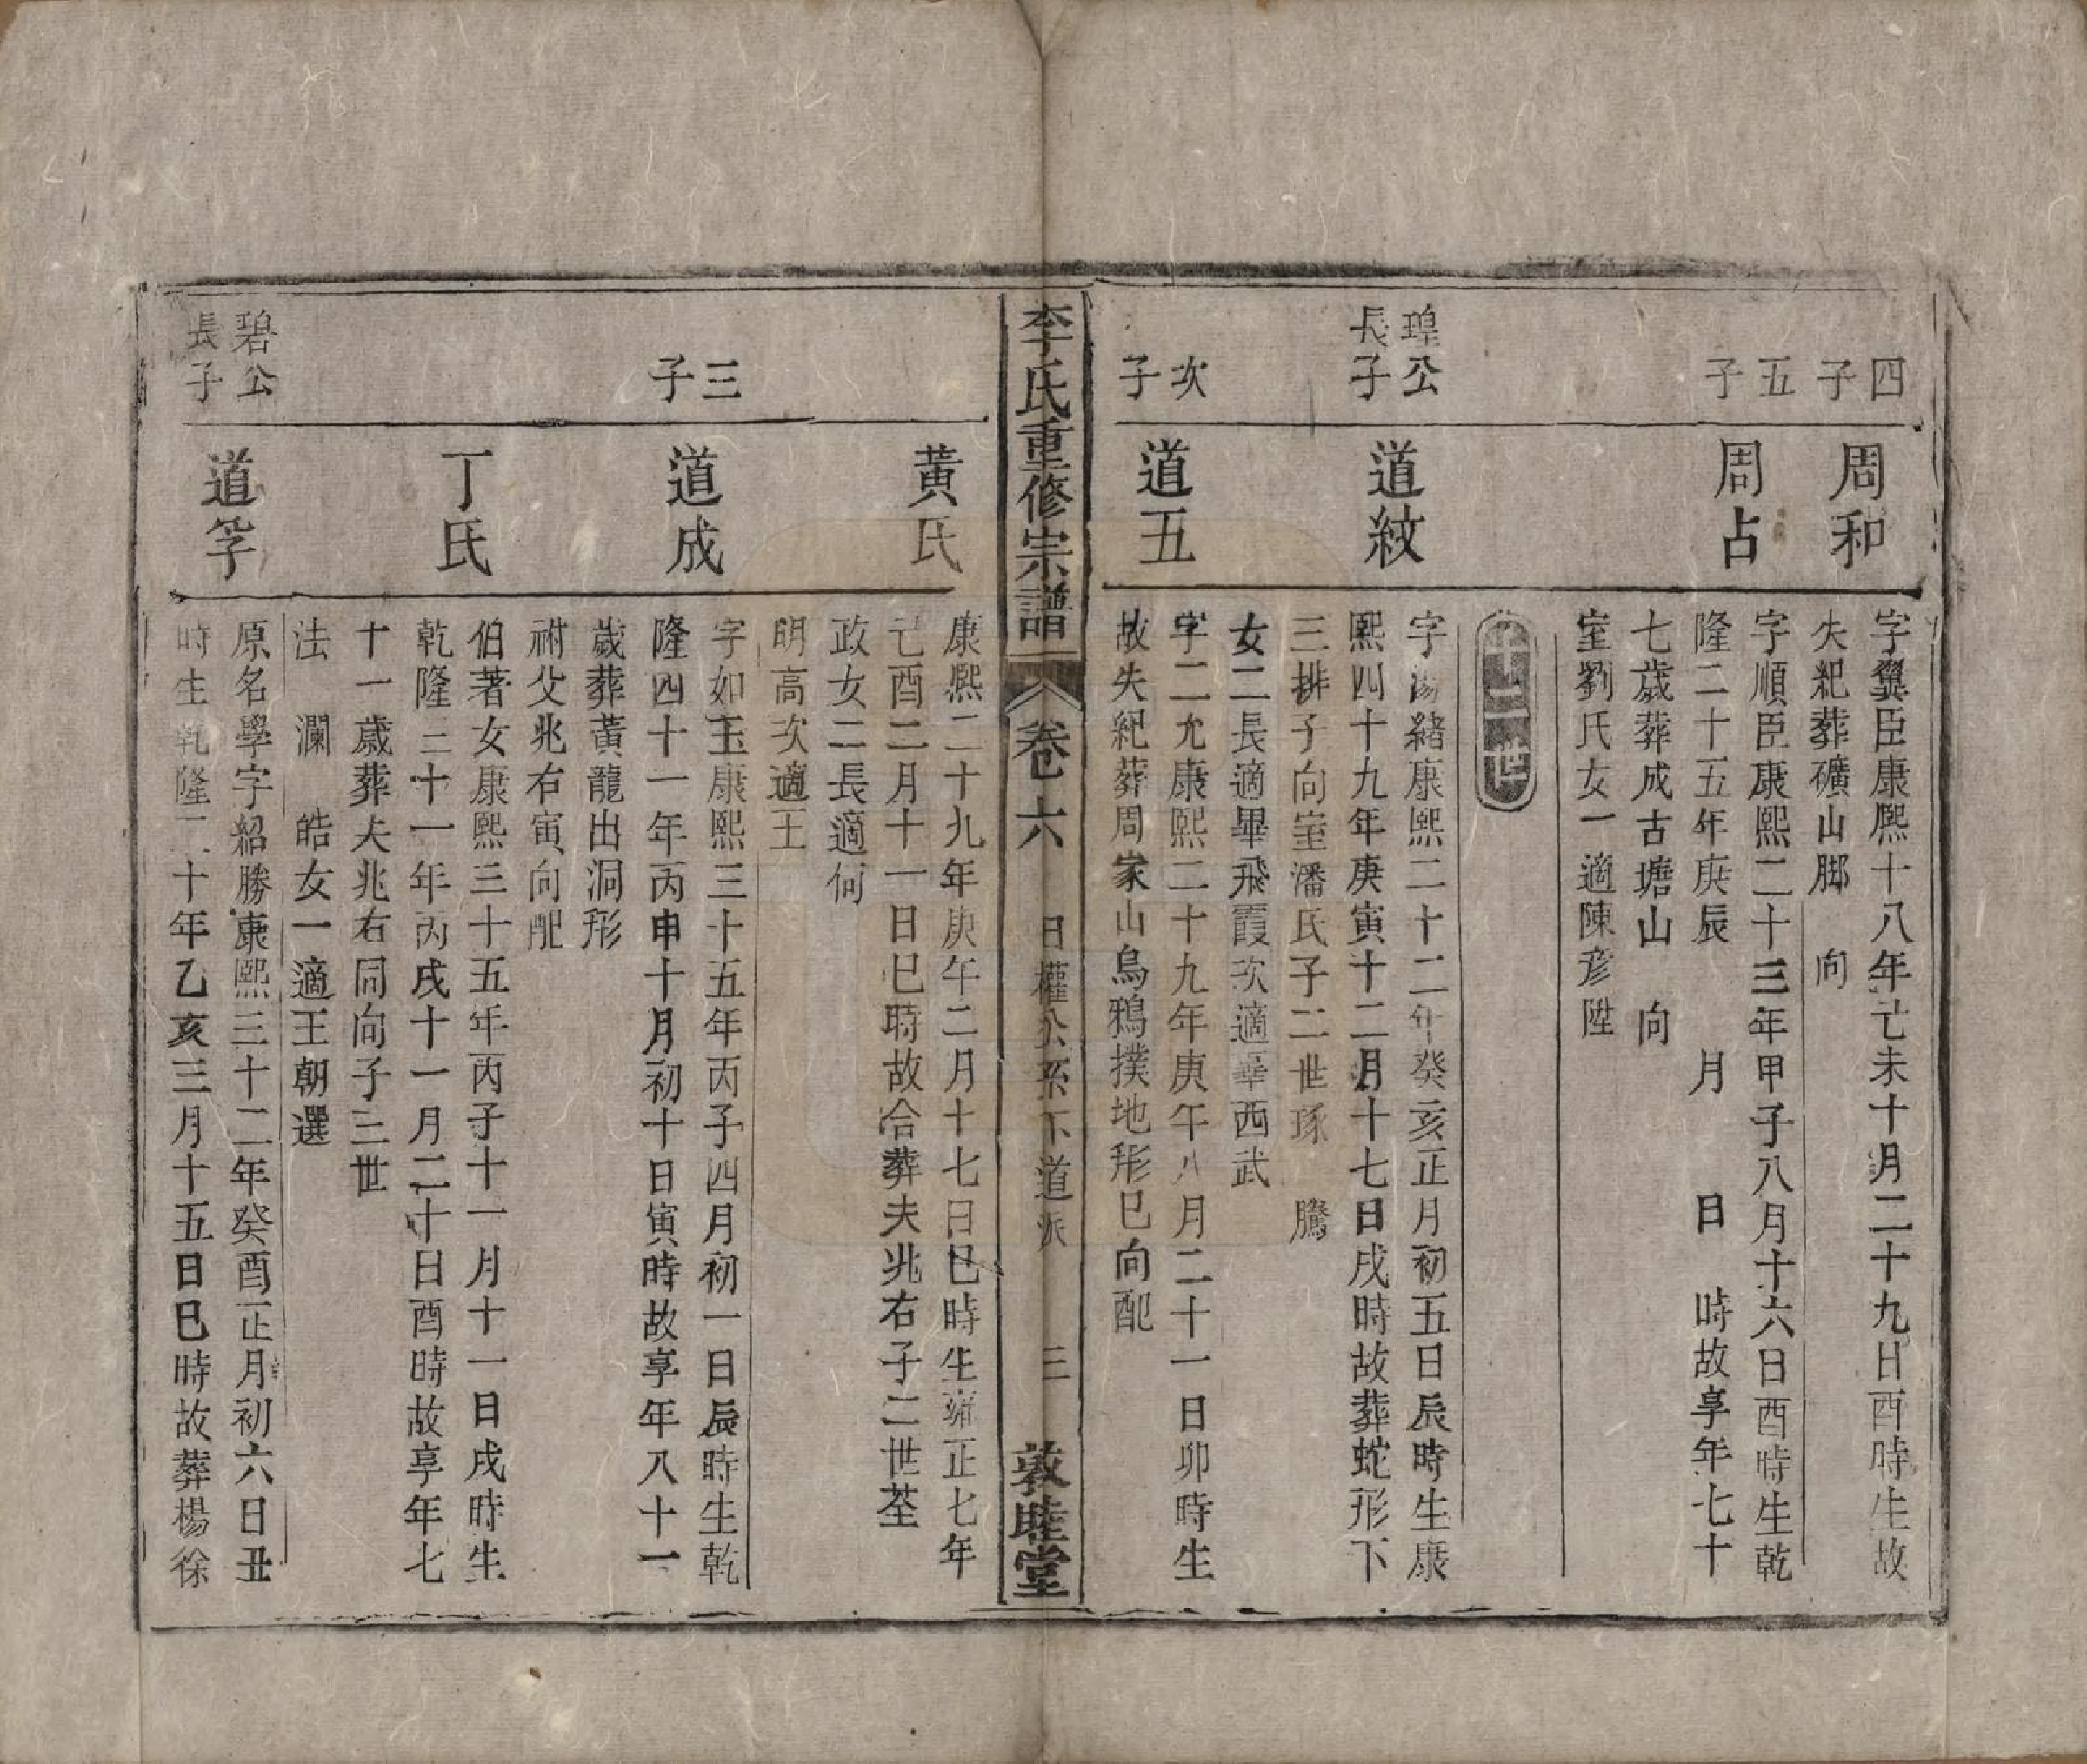 四子
周和
字翼臣康熈十八年己未十月二十九日酉時生故
失紀葬礦山脚　向
五子
周占
字順臣康熙二十三年甲子八月十六日酉時生乾
隆二十五年庚辰　月　日　時故享年七十
七歲葬成古塘山　向
室劉氏女一適陳彦陞
璋公長子
道紋
字湯緒康熙二十二年癸亥正月初五日辰時生康
熙四十九年庚寅十二月十七日戌時故葬蛇形下
三排子向室潘氏子二世琢　騰
女二長適畢飛霞次適畢西武
次子
道五
字二允康熙二十九年庚午八月二十一日卯時生
故失紀葬周家山烏鴉撲地形巳向配
李氏重修宗譜
卷六
日權公系下道派
三
敦睦堂
黃氏
康熙二十九年庚午二月十七日巳時生雍正七年
己酉二月十一日巳時故合葬夫兆右子二世荃
政女二長適何
明高次適王
三子
道成
字如玉康熙三十五年丙子四月初一日辰時生乾
隆四十一年丙申十月初十日寅時故享年八十一
歲葬黃龍出洞形
祔父兆右寅向配
丁氏
伯著女康熙三十五年丙子十一月十一日戌時生
乾隆三十一年丙戌十一月二十日酉時故享年七
十一歲葬夫兆右同向子三世
法　瀾　皓女一適王朝選
碧公長子
道孚
原名學字紹勝康熙三十二年癸酉正月初六日丑
時生乾隆二十年乙亥三月十五日巳時故葬楊徐